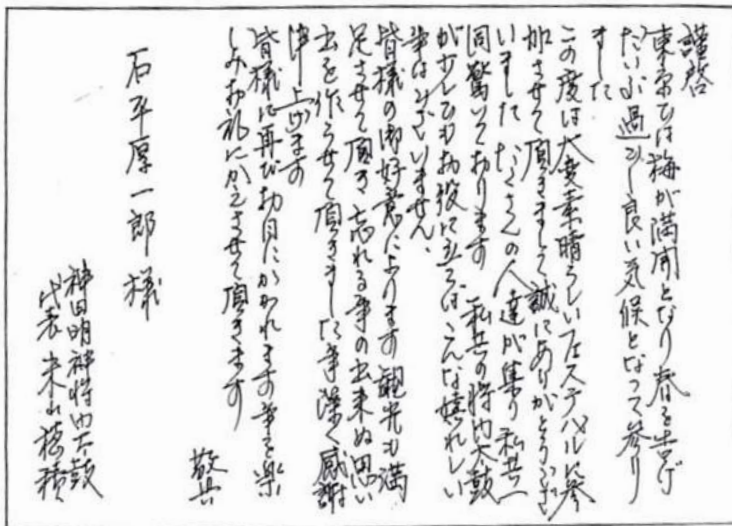 謹啓
東京では梅が満開となり春を告げ
だいぶ過ごし良い気候となって参り
ました
この度は大変素晴らしいフェステバルに参
加させて頂きまして誠にありがとうござ
いました たくさんの人達が集り私共一
同驚いております 私共の将門太鼓
が少しでもお役に立てばこんな嬉れしい
事はございません、
皆様の御好意によります観光も満
足させて頂き忘れる事の出来ぬ思い
出を作らせて頂きました事深く感謝
申し上げます
皆様に再びお目にかかれます事を楽
しみお礼にかえさせて頂きます
敬具
石平厚一郎 様
神田明神将門太鼓
代表